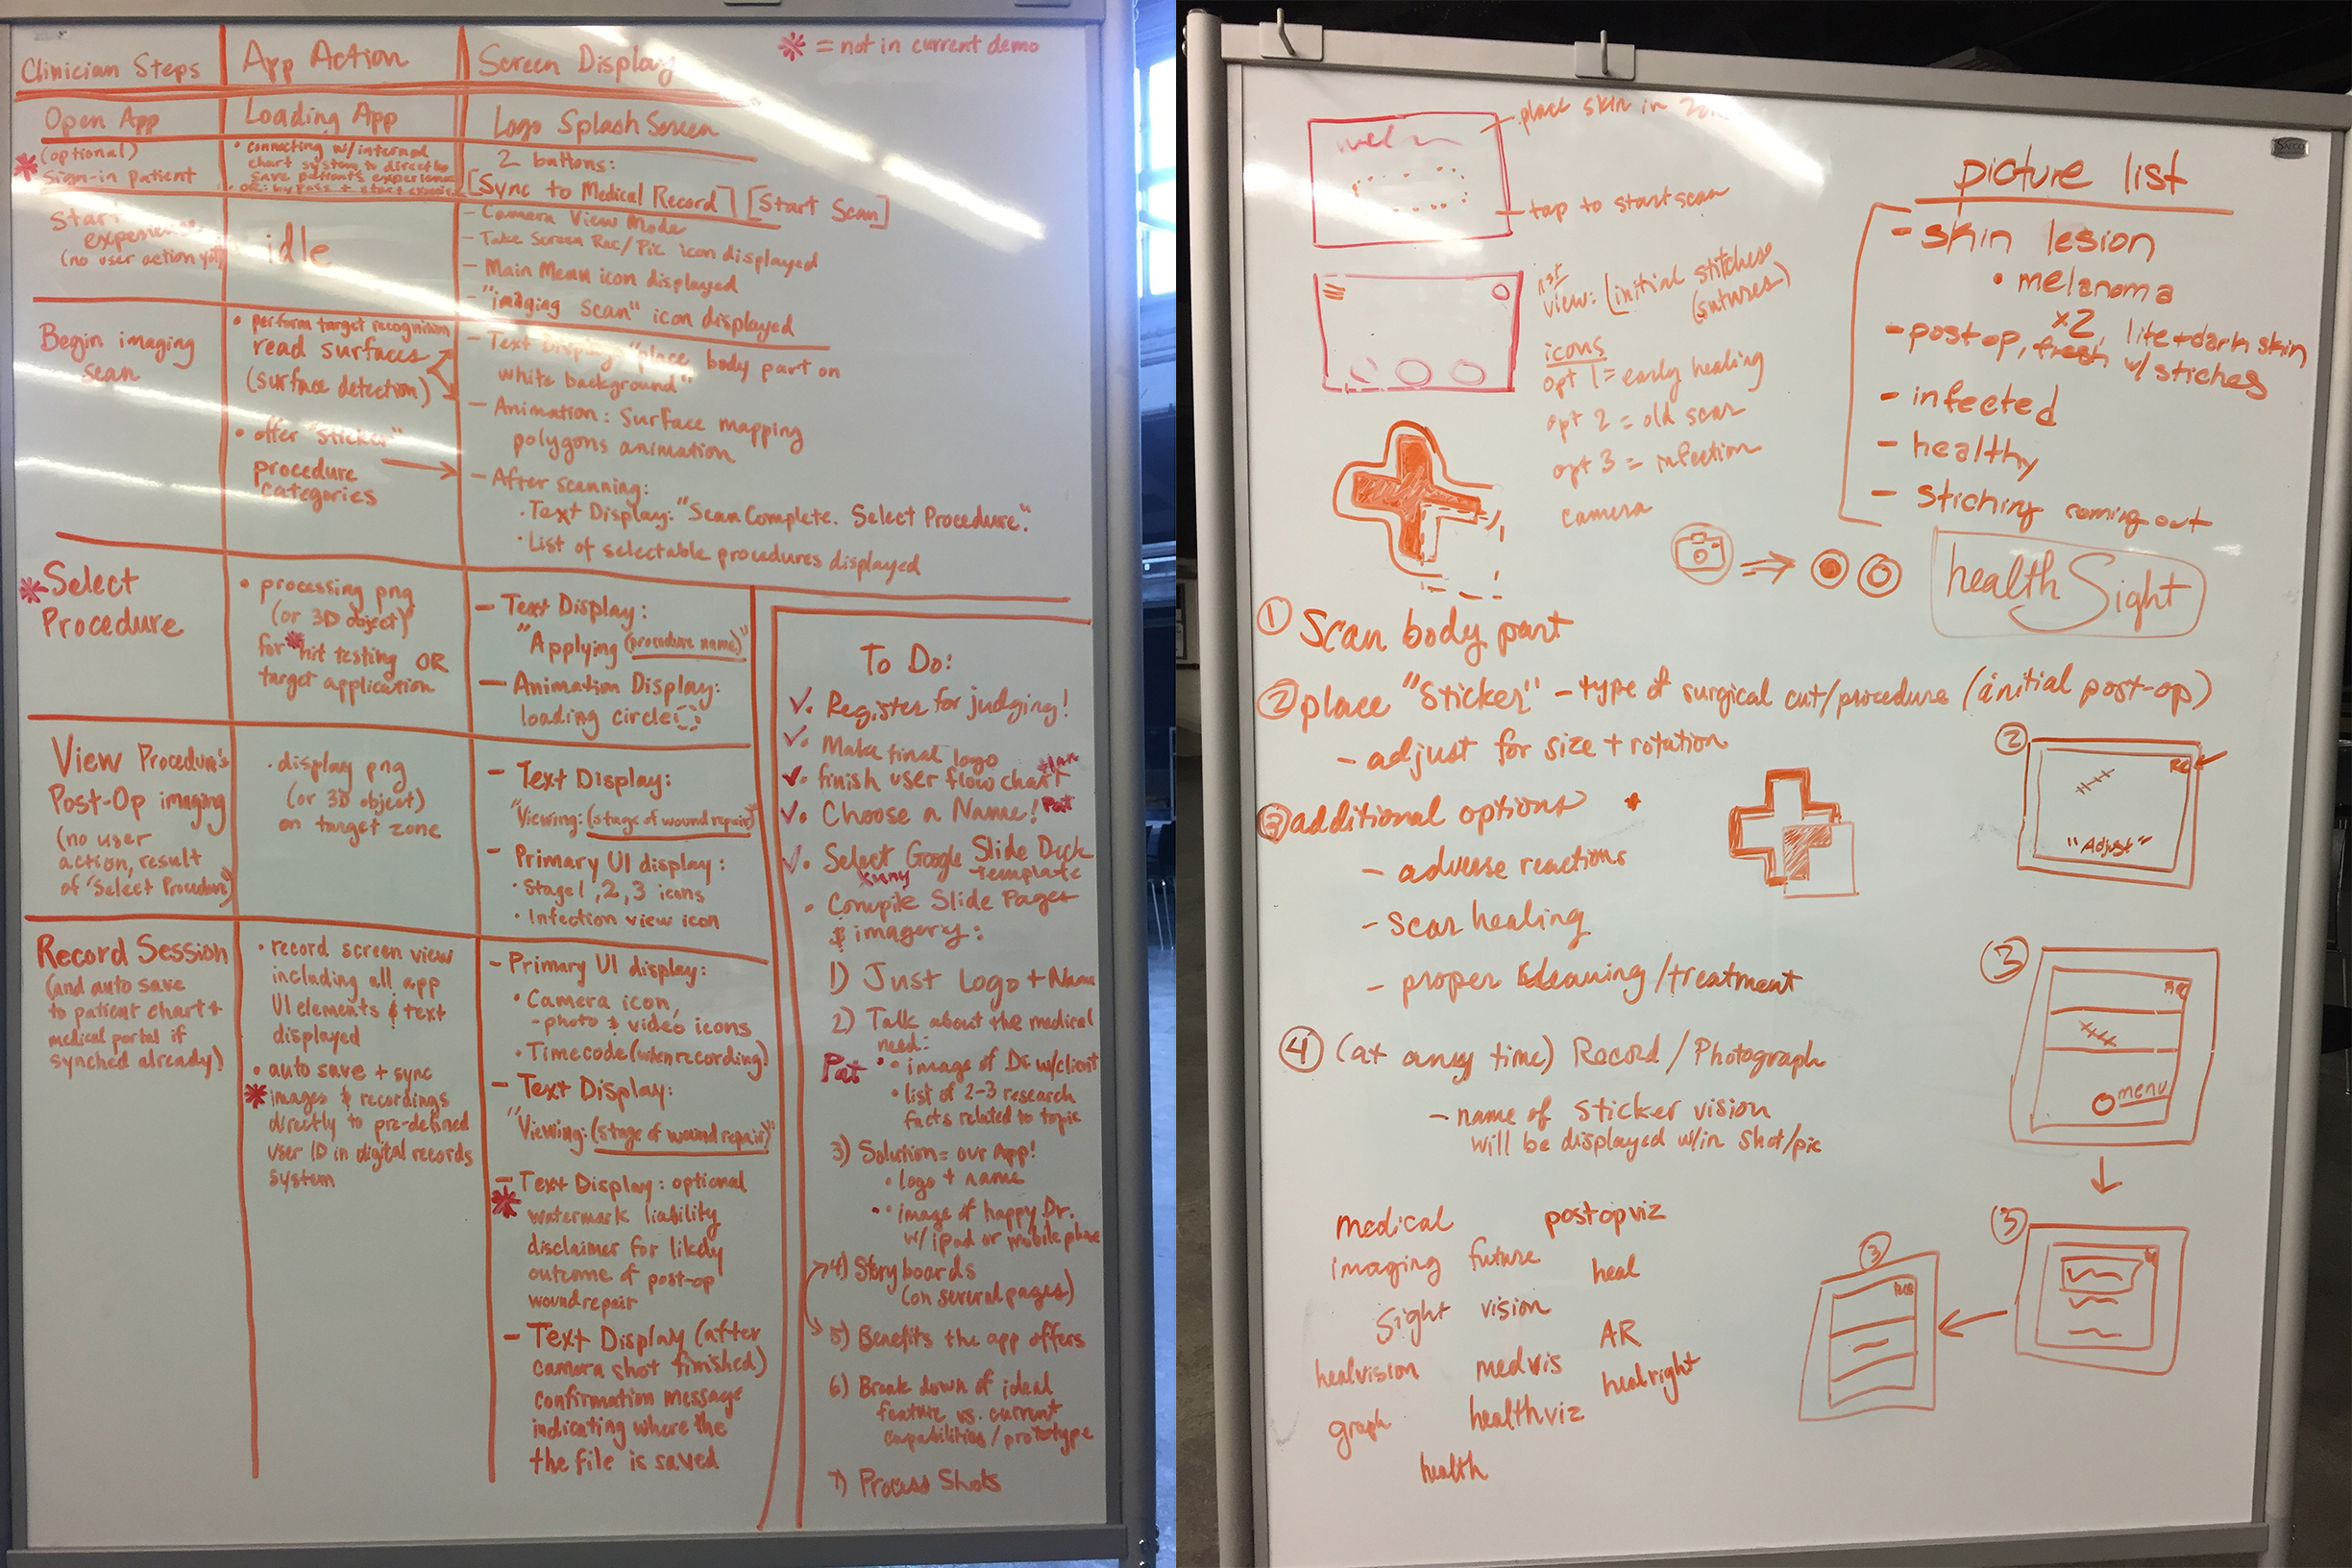 Clinician Steps
App Action
Screen Display
* = not in current demo
Open App
Loading App
Logo Splash Screen
* (optional)
Sign-in patient
• connecting w/internal
chart system to directly
save patient's experience
• or: bypass + start
2 buttons:
[Sync to Medical Record] [Start Scan]
Start
experience
(no user action yet)
idle
- Camera View Mode
- Take Screen Rec/Pic icon displayed
- Main Menu icon displayed
- "imaging Scan" icon displayed
Begin imaging
scan
• perform target recognition
read surfaces
(surface detection)
• offer "sticker"
procedure
categories
- Text Display: "place body part on
white background"
- Animation: Surface mapping
polygons animation.
- After scanning:
• Text Display: "Scan Complete. Select Procedure."
• List of selectable procedures displayed
* Select
Procedure
• processing png
(or 3D object)
for * hit testing OR
target application
- Text Display:
"Applying (procedure name)"
- Animation Display:
loading circle
View Procedure's
Post-Op imaging
(no user
action, result
of "Select Procedure")
• display png
(or 3D object)
on target zone
- Text Display:
"Viewing: (stage of wound repair)"
- Primary UI display:
• Stage 1, 2, 3 icons
• Infection view icon
Record Session
(and auto save
to patient chart +
medical portal if
synched already)
• record screen view
including all app
UI elements & text
displayed
• auto save + sync
* images & recordings
directly to pre-defined
user ID in digital records
system
- Primary UI display:
• Camera icon,
- photo & video icons
• Timecode (when recording)
- Text Display:
"Viewing: (stage of wound repair)"
- Text Display: optional
* watermark liability
disclaimer for likely
outcome of post-op
wound repair
- Text Display (after
camera shot finished)
confirmation message
indicating where the
the file is saved
To Do:
✓• Register for judging!
✓• Make final logo
✓• finish user flow chart
✓• Choose a Name! Pat
✓• Select Google Slide Deck
template
• Compile Slide Pages
& imagery:
1) Just Logo + Name
2) Talk about the medical
need:
Pat • image of Dr w/client
• list of 2-3 research
facts related to topic
3) Solution = our App!
• logo + name
• image of happy Dr.
w/ iPad or mobile phone
4) Storyboards
(on several pages)
5) Benefits the app offers
6) Break down of ideal
feature vs. current
capabilities/prototype
7) Process Shots
place skin in
tap to start scan
1st
view: (initial stitches
(sutures)
icons
opt 1 = early healing
opt 2 = old scar
opt 3 = infection
camera
picture list
- skin lesion
• melanoma
- post op, fresh x2, lite + dark skin
w/ stiches
- infected
- healthy
- stiching coming out
health Sight
① Scan body part
② place "Sticker" - type of surgical cut/procedure (initial post-op)
- adjust for size + rotation
③ additional options
- adverse reactions
- scar healing
- proper cleaning/treatment
④ (at any time) Record / Photograph
- name of sticker vision
will be displayed w/in shot/pic
②
"Adjust"
③
menu
③
③
medical
postopviz
imaging
future
heal
sight
vision
AR
healvision
medvis
healright
graph
healthviz
health